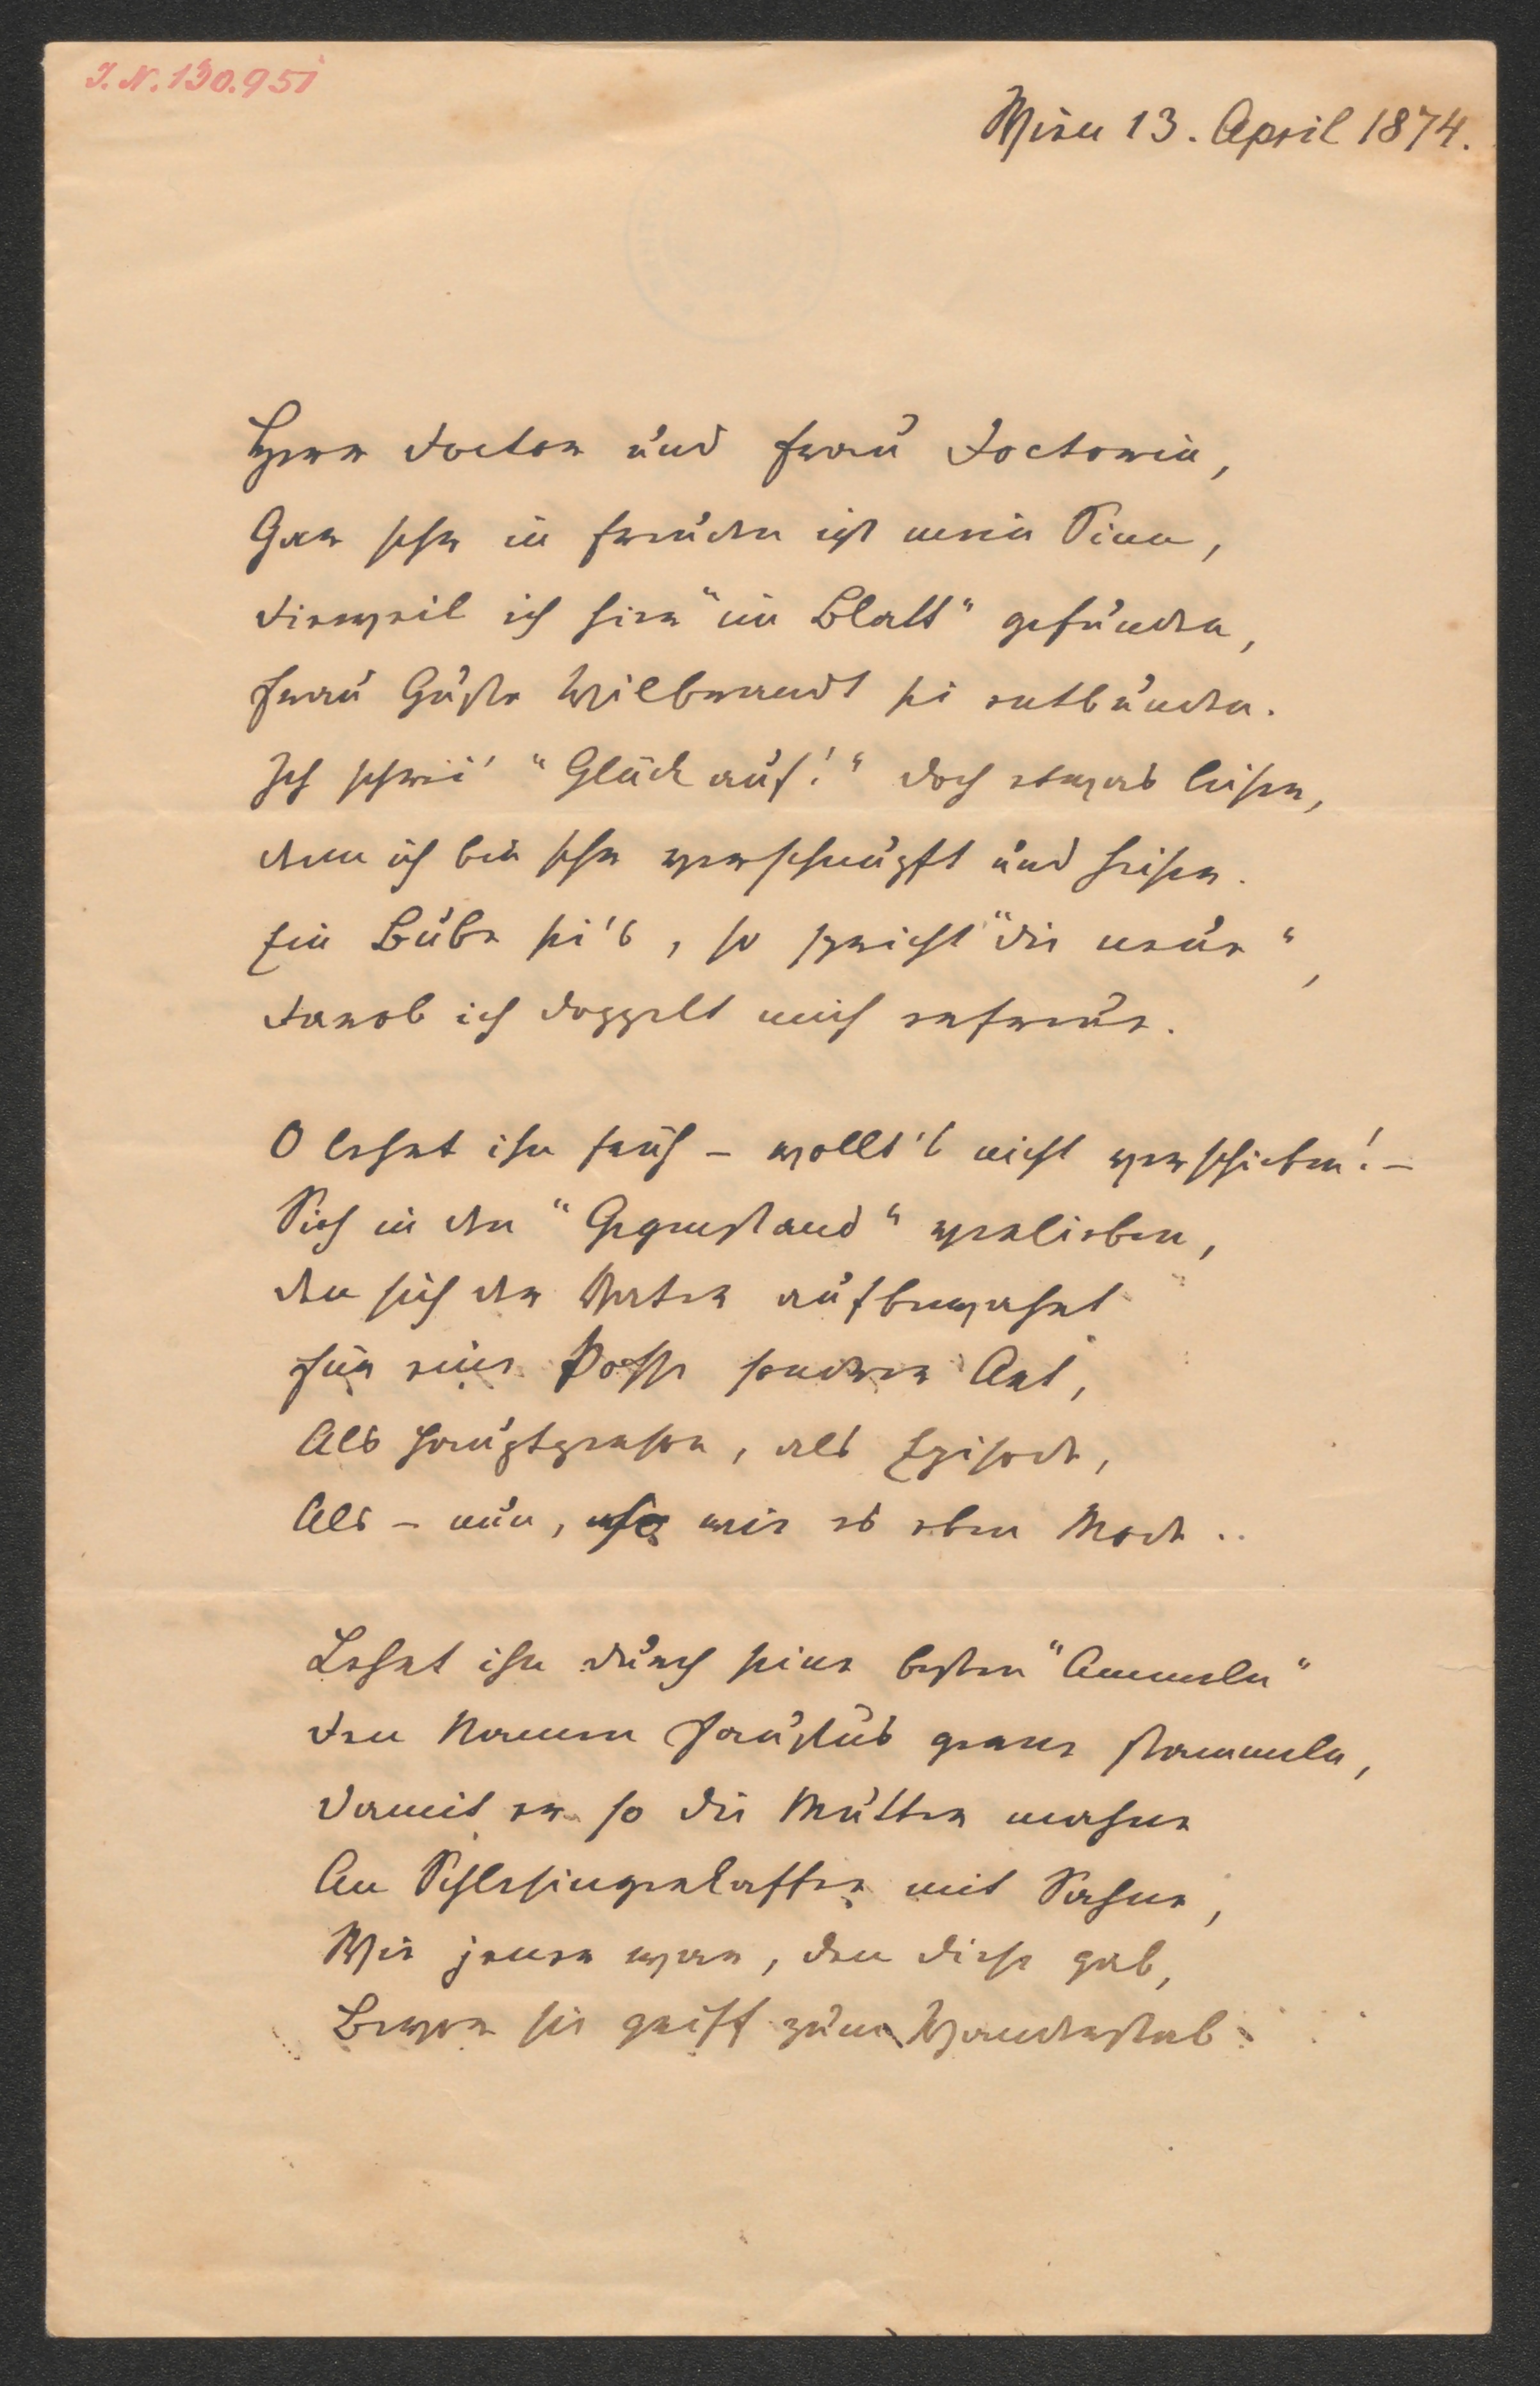 J. N. 130.951
Wien 13. April 1874.
Herr Doctor und Frau Doctorin,
Gar sehr in Freuden ist mein Sinn,
Dieweil ich hier "im Blatt" gefunden,
Frau Guste Wilbrandt sei entbunden.
Ich schrei' "Glück auf!" doch etwas leiser,
Denn ich bin sehr verschnupft und heiser.
Ein Bube sei's, so spricht "die neue",
Darob ich doppelt mich erfreue.
O lehrt ihn früh – wollt's nicht verschieben! –
Sich in den "Gegenstand" verlieben,
Den sich der Vater aufbewahrt
Für eine Posse sondrer Art,
Als Hauptperson, als Episode,
Als – nun, wie es eben Mode ..
Lehrt ihn durch seine besten "Ammeln"
Den Namen Faustus gerne stammeln,
Damit er so die Mutter mahne
An Schlesingerkaffee mit Sahne,
Wie jener war, den diese gab,
Bevor sie griff zum Wanderstab.